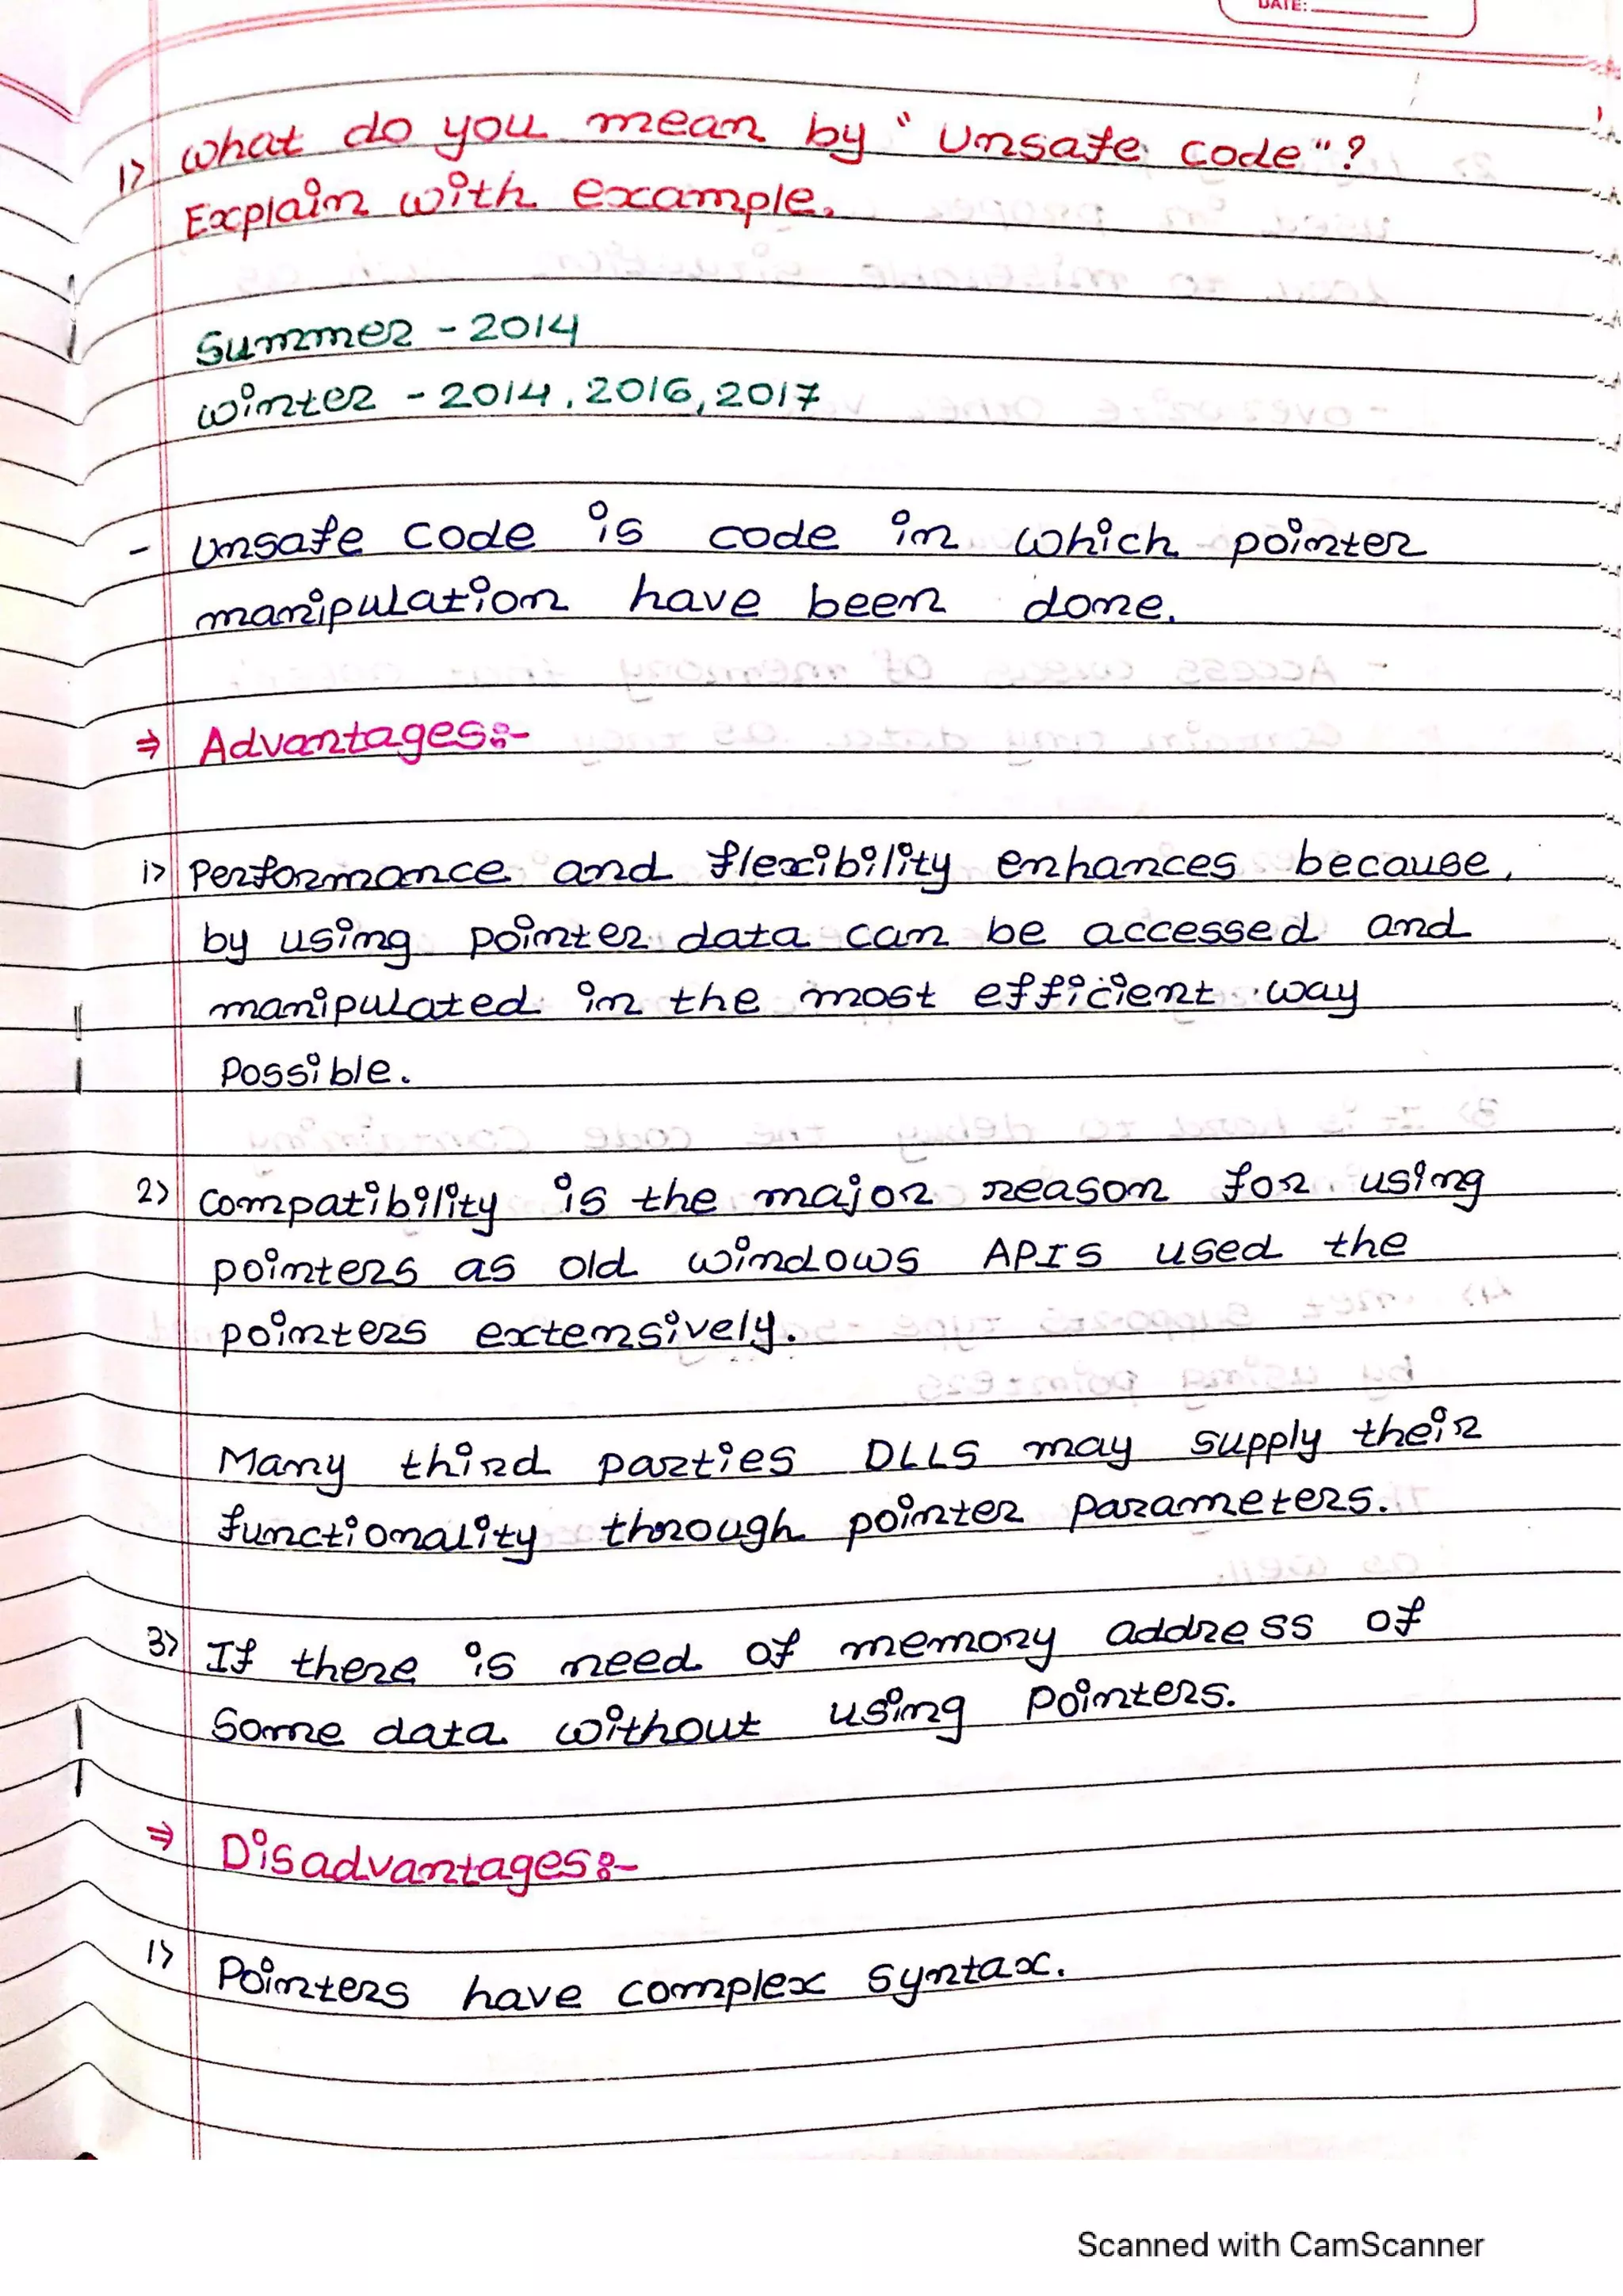 DATE:
1) What do you mean by "Unsafe code"?
Explain with example.
Summer - 2014
Winter - 2014, 2016, 2017
- Unsafe code is code in which pointer
manipulation have been done.
⇒ Advantages:-
1) Performance and flexibility enhances because,
by using pointer data can be accessed and
manipulated in the most efficient way
Possible.
2) Compatibility is the major reason for using
pointers as old windows APIS used the
pointers extensively.
Many third parties DLLS may supply their
functionality through pointer parameters.
3) If there is need of memory address of
Some data without using Pointers.
⇒ Disadvantages:-
1) Pointers have complex syntax.
Scanned with CamScanner